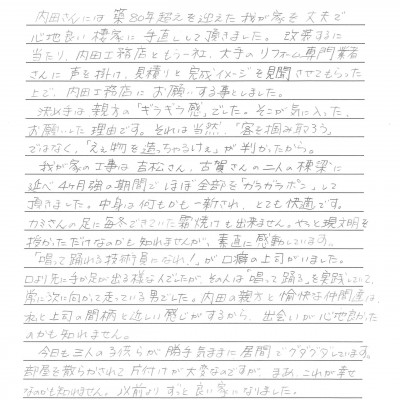 内田さんには築80年超えを迎えた我が家を丈夫で
心地良い棲家に手直しして頂きました。改築するに
当たり、内田工務店ともう一社、大手のリフォーム専門業者
さんに声を掛け、見積りと完成イメージを見聞させてもらった
上で、内田工務店にお願いする事としました。
決め手は親方の「ギラギラ感」でした。そこが気に入った、
お願いした理由です。それは当然、"客を掴み取ろう"
ではなく、"ええ物を造っちゃるけぇ"が判かったから。
我が家の工事は吉松さん、古賀さんの二人の棟梁に
延べ4ヶ月強の期間でほぼ全部を「ガラガラポン」して
頂きました。中身は何もかも一新され、とても快適です。
カミさんの足に毎冬できていた霜焼けも出来ません。やっと現文明を
授かっただけなのかも知れませんが、素直に感動しています。
「唱って踊れる技術員になれ!」が口癖の上司がいました。
口より先に手か足が出る様な人でしたが、その人は「唱って踊る」を実践していて、
常に次に向かって走っている男でした。内田の親方と愉快な仲間達は、
私と上司の間柄と近しい感じがするから、出会いが心地よかった
のかも知れません。
今日も三人の
らが勝手気ままに居間でグダグダしています。
部屋を散らかされて片付けが大変なのですが、まあ、これが幸せ
なのかも知れません。以前よりずっと良い家になりました。